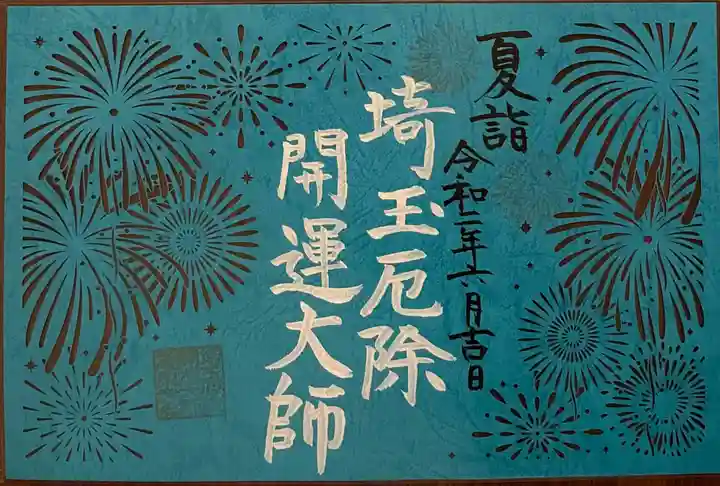 夏詣
令和二年六月吉日
埼玉厄除
開運大師